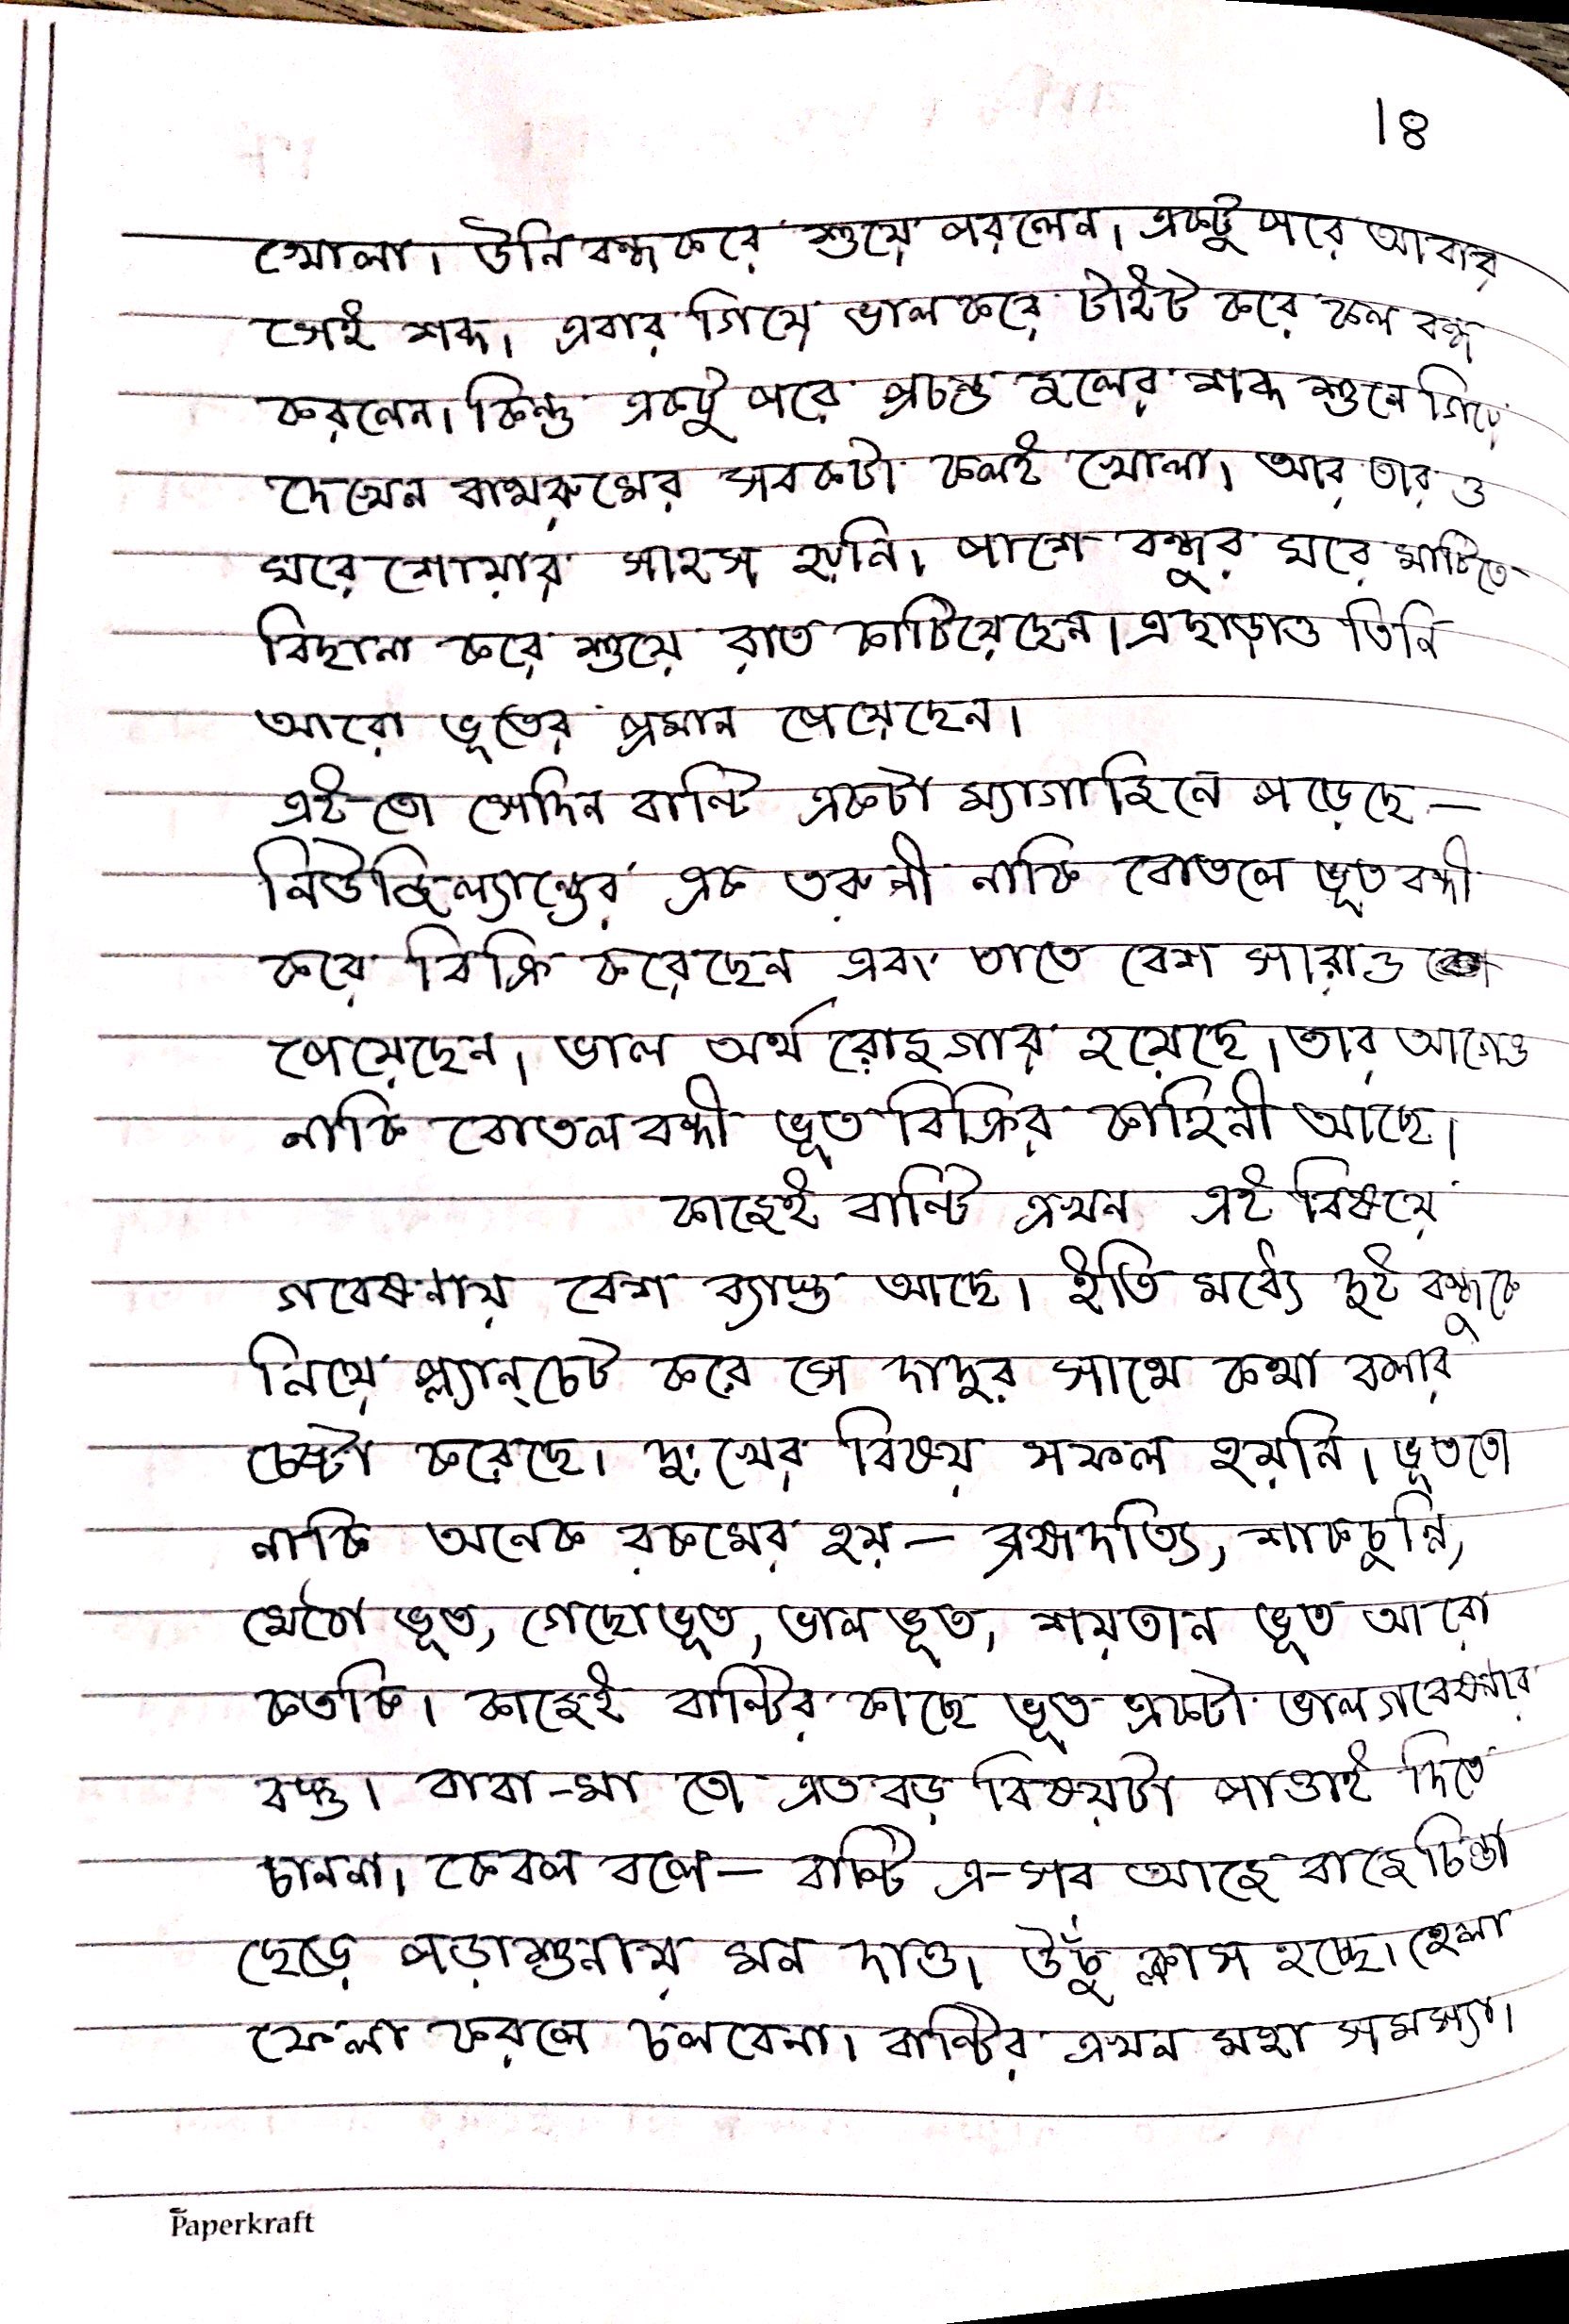 18
খোলা। উনি বন্ধ করে শুয়ে পরলেন। একটু পরে আবার
সেই শব্দ। এবার গিয়ে ভাল করে টাইট করে কল বন্ধ
করলেন। কিন্তু একটু পরে প্রচন্ড জলের শব্দ শুনে গিয়ে
দেখেন বাথরুমের সবকটা কলই খোলা। আর তার ও
ঘরে শোয়ার সাহস হয়নি। পাশে বন্ধুর ঘরে মাটিতে
বিছানা করে শুয়ে রাত কাটিয়েছেন। এছাড়াও তিনি
আরো ভূতের প্রমান পেয়েছেন।
এই তো সেদিন বান্টি একটা ম্যাগাজিনে পড়েছে —
নিউজিল্যান্ডের এক তরুনী নাকি বোতলে ভূত বন্দী
করে বিক্রি করেছেন এবং তাতে বেশ সারাও
পেয়েছেন। ভাল অর্থ রোজগার হয়েছে। তার আগেও
নাকি বোতল বন্দী ভূত বিক্রির কাহিনী আছে।
কাজেই বান্টি এখন এই বিষয়ে
গবেষনায় বেশ ব্যাস্ত আছে। ইতি মধ্যে দুই বন্ধুকে
নিয়ে প্ল্যান্‌চেট করে সে দাদুর সাথে কথা বলার
চেষ্টা করেছে। দুঃখের বিষয় সফল হয়নি। ভূততো
নাকি অনেক রকমের হয় — ব্রহ্মদত্যি, শাকচুন্নি,
মেঠো ভূত, গেছো ভূত, ভাল ভূত, শয়তান ভূত আরো
কতকি। কাজেই বান্টির কাছে ভূত একটা ভাল গবেষনার
বস্তু। বাবা-মা তো এত বড় বিষয়টা পাত্তাই দিতে
চাননা। কেবল বলে — বান্টি এ-সব আজে বাজে চিন্তা
ছেড়ে পড়াশুনায় মন দাও। উঁচু ক্লাস হচ্ছে। হেলা
ফেলা করলে চলবেনা। বান্টির এখন মহা সমস্যা।
Paperkraft